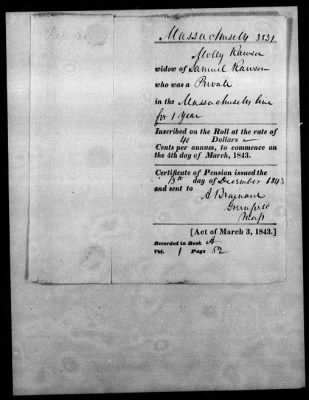 Massachusetts 3531
Molly Rawson
widow of Samuel Rawson
who was a Private
in the Massachusetts line
for 1 Year
Inscribed on the Roll at the rate of
40 Dollars
Cents per annum, to commence on
the 4th day of March, 1843.
Certificate of Pension issued the
13th day of December 1843
and sent to
Greenfield
Mass
[Act of March 3, 1843.]
Recorded in Book A
Vol. 1 Page 52